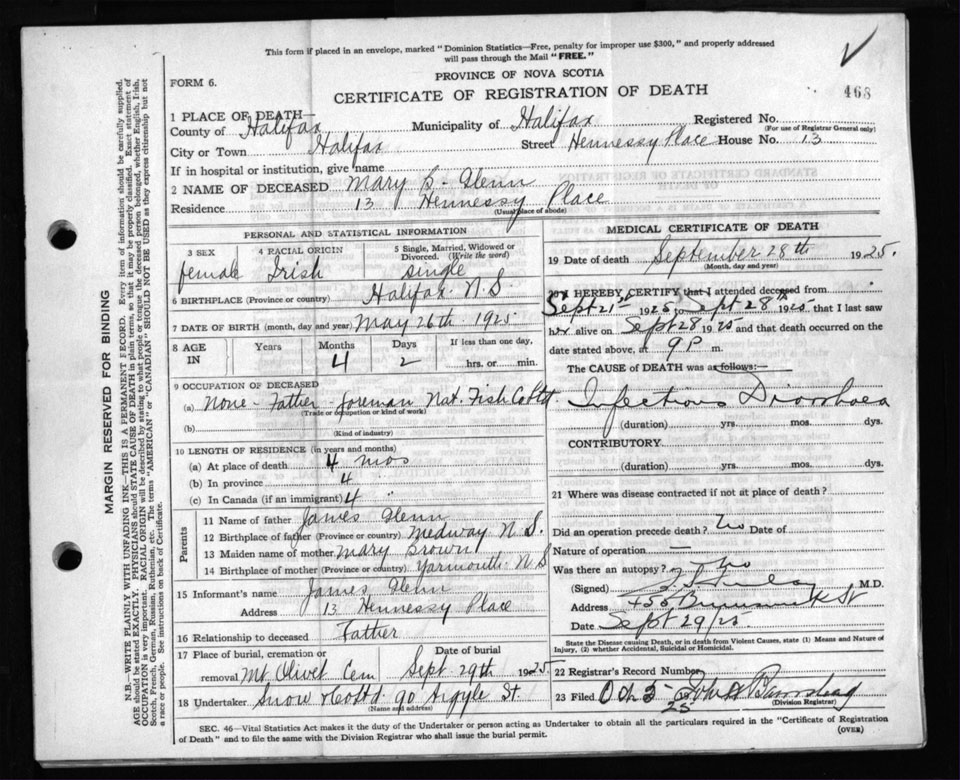 This form if placed in an envelope, marked "Dominion Statistics—Free, penalty for improper use $300," and properly addressed
will pass through the Mail "FREE."
FORM 6.
PROVINCE OF NOVA SCOTIA
CERTIFICATE OF REGISTRATION OF DEATH
468
1 PLACE OF DEATH—
County of Halifax Municipality of Halifax Registered No.
(For use of Registrar General only)
City or Town Halifax Street Hennessy Place House No. 13
If in hospital or institution, give name
2 NAME OF DECEASED Mary Glenn
Residence 13 Hennessy Place
(Usual place of abode)
PERSONAL AND STATISTICAL INFORMATION
3 SEX 4 RACIAL ORIGIN 5 Single, Married, Widowed or Divorced. (Write the word)
female Irish single
6 BIRTHPLACE (Province or country) Halifax N.S.
7 DATE OF BIRTH (month, day and year) May 26th 1925
8 AGE IN Years Months Days If less than one day,
4 2 hrs. or min.
9 OCCUPATION OF DECEASED
(a) None - Father - foreman Nat. Fish Co Ltd.
(Trade or occupation or kind of work)
(b)
(Kind of industry)
10 LENGTH OF RESIDENCE (in years and months)
(a) At place of death 4 mos
(b) In province 4 "
(c) In Canada (if an immigrant) 4 "
Parents
11 Name of father James Glenn
12 Birthplace of father (Province or country) Medway N.S.
13 Maiden name of mother Mary Brown
14 Birthplace of mother (Province or country) Yarmouth N S
15 Informant's name James Glenn
Address 13 Hennessy Place
16 Relationship to deceased Father
17 Place of burial, cremation or removal Mt Olivet Cem Date of burial Sept 29th 1925
18 Undertaker Snow & Co Ltd 90 Argyle St.
(Name and address)
MEDICAL CERTIFICATE OF DEATH
19 Date of death September 28th 1925.
(Month, day and year)
20 I HEREBY CERTIFY that I attended deceased from
Sept 21st 1925 to Sept 28th 1925 that I last saw
her alive on Sept 28 1925 and that death occurred on the
date stated above, at 9 P m.
The CAUSE of DEATH was as follows:—
Infectious Diarrhoea
(duration) yrs. mos. dys.
CONTRIBUTORY
(duration) yrs. mos. dys.
21 Where was disease contracted if not at place of death?
Did an operation precede death? No Date of
Nature of operation —
Was there an autopsy? No
(Signed) M.D.
Address 455 Brunswick St
Date Sept 29/25
State the Disease causing Death, or in death from Violent Causes, state (1) Means and Nature of
Injury, (2) whether Accidental, Suicidal or Homicidal.
22 Registrar's Record Number
23 Filed Oct 3 25
(Division Registrar)
SEC. 46—Vital Statistics Act makes it the duty of the Undertaker or person acting as Undertaker to obtain all the particulars required in the "Certificate of Registration
of Death" and to file the same with the Division Registrar who shall issue the burial permit.
(OVER)
MARGIN RESERVED FOR BINDING
N.B.—WRITE PLAINLY WITH UNFADING INK—THIS IS A PERMANENT RECORD. Every item of information should be carefully supplied.
AGE should be stated EXACTLY. PHYSICIANS should STATE CAUSE OF DEATH in plain terms, so that it may be properly classified. Exact statement of
OCCUPATION is very important. RACIAL ORIGIN will be described by stating to what people or tongue the deceased person belonged, whether English, Irish,
Scotch, French, German, Russian, Ruthenian, etc. The terms "AMERICAN" or "CANADIAN" SHOULD NOT BE USED as they express citizenship but not
a race or people. See instructions on back of Certificate.